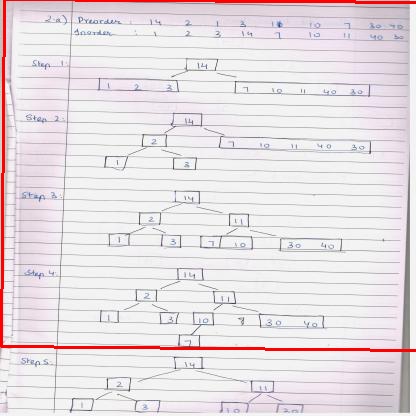 2-a) Preorder : 14 2 1 3 11 10 7 30 40
Inorder : 1 2 3 14 7 10 11 40 30
Step 1:
14
1 2 3 7 10 11 40 30
Step 2:
14
2 7 10 11 40 30
1 3
Step 3:
14
2 11
1 3 7 10 30 40
Step 4:
14
2 11
1 3 10 30 40
7
Step 5:
14
2 11
1 3 10 30